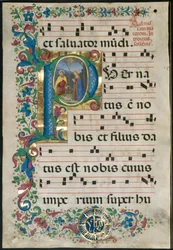 et saluator mūdi.
PUer na
tus ē no
bis et filius da
tus est nobis cuius
impe rium super hu